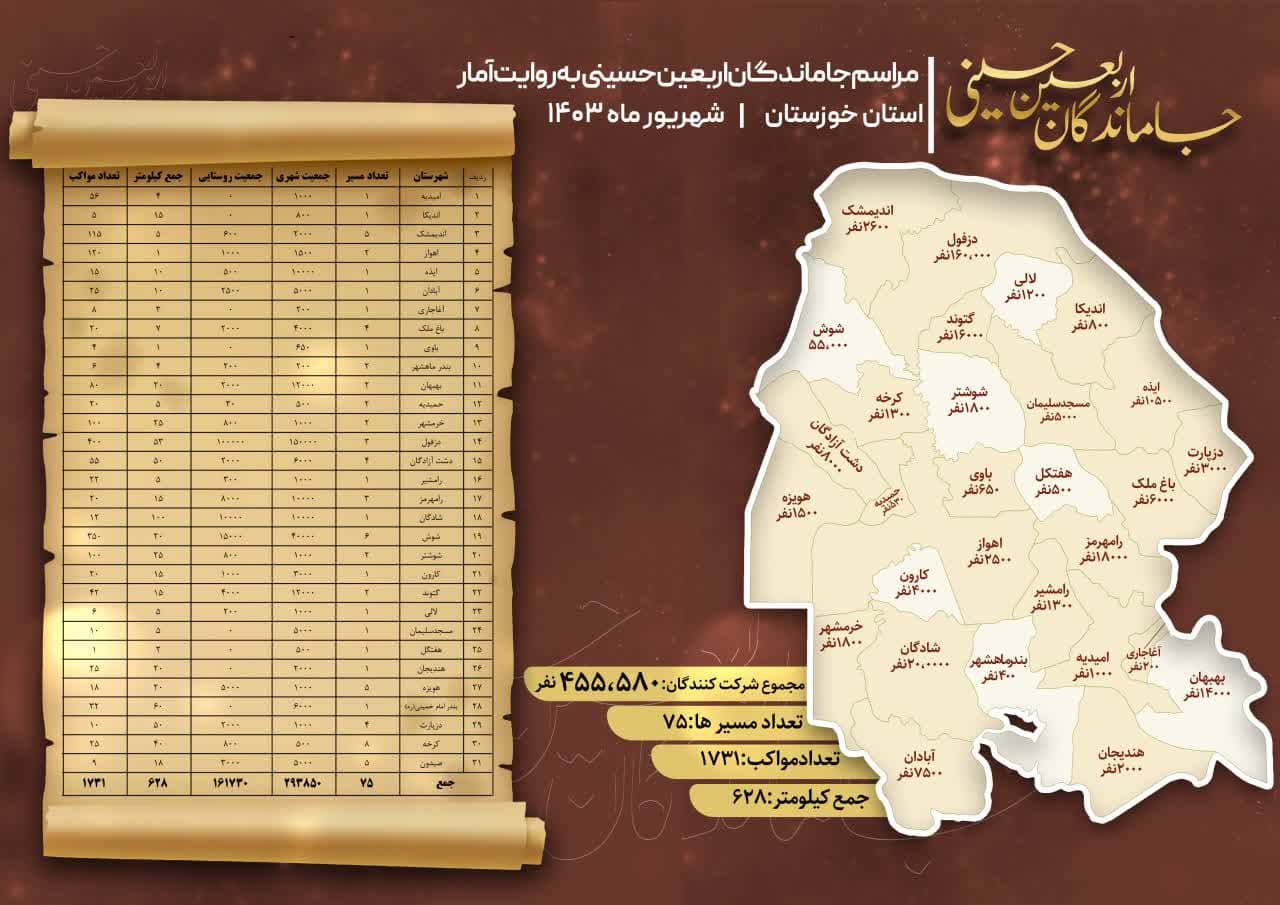 جاماندگان اربعین حسینی
مراسم جاماندگان اربعین حسینی به روایت آمار
استان خوزستان | شهریور ماه ۱۴۰۳
ردیف شهرستان تعداد مسیر جمعیت شهری جمعیت روستایی جمع کیلومتر تعداد مواکب
۱ امیدیه ۱ ۱۰۰۰ ۰ ۴ ۵۶
۲ اندیکا ۱ ۸۰۰ ۰ ۱۵ ۵
۳ اندیمشک ۵ ۲۰۰۰ ۶۰۰ ۵ ۱۱۵
۴ اهواز ۲ ۱۵۰۰ ۱۰۰۰ ۱ ۱۲۰
۵ ایذه ۱ ۱۰۰۰۰ ۵۰۰ ۱۰ ۱۵
۶ آبادان ۱ ۵۰۰۰ ۲۵۰۰ ۱۰ ۲۵
۷ آغاجاری ۱ ۲۰۰ ۰ ۳ ۸
۸ باغ ملک ۴ ۴۰۰۰ ۲۰۰۰ ۷ ۲۰
۹ باوی ۱ ۶۵۰ ۰ ۱ ۴
۱۰ بندر ماهشهر ۲ ۲۰۰ ۲۰۰ ۴ ۶
۱۱ بهبهان ۲ ۱۲۰۰۰ ۲۰۰۰ ۲۰ ۸۰
۱۲ حمیدیه ۲ ۵۰۰ ۳۰ ۵ ۲۰
۱۳ خرمشهر ۲ ۱۰۰۰ ۸۰۰ ۲۵ ۱۰۰
۱۴ دزفول ۳ ۱۵۰۰۰۰ ۱۰۰۰۰۰ ۵۳ ۴۰۰
۱۵ دشت آزادگان ۴ ۶۰۰۰ ۲۰۰۰ ۵۰ ۵۵
۱۶ رامشیر ۱ ۱۰۰۰ ۳۰۰ ۵ ۲۲
۱۷ رامهرمز ۳ ۱۰۰۰۰ ۸۰۰۰ ۱۵ ۲۰
۱۸ شادگان ۱ ۱۰۰۰۰ ۱۰۰۰۰ ۱۰۰ ۱۲
۱۹ شوش ۶ ۴۰۰۰۰ ۱۵۰۰۰ ۲۰ ۳۵۰
۲۰ شوشتر ۲ ۱۰۰۰ ۸۰۰ ۲۵ ۱۰۰
۲۱ کارون ۱ ۳۰۰۰ ۱۰۰۰ ۱۵ ۲۰
۲۲ گتوند ۲ ۱۲۰۰۰ ۴۰۰۰ ۱۵ ۴۲
۲۳ لالی ۱ ۱۰۰۰ ۲۰۰ ۵ ۶
۲۴ مسجدسلیمان ۱ ۵۰۰۰ ۰ ۵ ۱۰
۲۵ هفتگل ۱ ۵۰۰ ۰ ۲ ۱
۲۶ هندیجان ۱ ۲۰۰۰ ۰ ۲۰ ۲۵
۲۷ هویزه ۵ ۱۰۰۰ ۵۰۰۰ ۲۰ ۱۸
۲۸ بندر امام خمینی(ره) ۱ ۶۰۰۰ ۰ ۶۰ ۳۲
۲۹ دزپارت ۴ ۱۰۰۰ ۲۰۰۰ ۵۰ ۱۰
۳۰ کرخه ۸ ۵۰۰ ۸۰۰ ۴۰ ۲۵
۳۱ صیدون ۵ ۵۰۰۰ ۳۰۰۰ ۱۸ ۹
جمع ۷۵ ۲۹۳۸۵۰ ۱۶۱۷۳۰ ۶۲۸ ۱۷۳۱
اندیمشک
۲۶۰۰نفر
دزفول
۱۶۰،۰۰۰نفر
لالی
۱۲۰۰نفر
اندیکا
۸۰۰نفر
گتوند
۱۶۰۰۰نفر
شوش
۵۵،۰۰۰
شوشتر
۱۸۰۰نفر
کرخه
۱۳۰۰نفر
مسجدسلیمان
۵۰۰۰نفر
ایذه
۱۰۵۰۰نفر
دشت آزادگان
۸۰۰۰نفر
دزپارت
۳۰۰۰نفر
باغ ملک
۶۰۰۰نفر
هفتکل
۵۰۰نفر
باوی
۶۵۰نفر
حمیدیه
۵۳۰نفر
هویزه
۱۵۰۰نفر
اهواز
۲۵۰۰نفر
رامهرمز
۱۸۰۰۰نفر
کارون
۴۰۰۰نفر
رامشیر
۱۳۰۰نفر
خرمشهر
۱۸۰۰نفر
شادگان
۲۰،۰۰۰۰نفر
بندرماهشهر
۴۰۰نفر
امیدیه
۱۰۰۰نفر
آغاجاری
۲۰۰نفر
بهبهان
۱۴۰۰۰نفر
هندیجان
۲۰۰۰نفر
آبادان
۷۵۰۰نفر
مجموع شرکت کنندگان:۴۵۵،۵۸۰ نفر
تعداد مسیر ها:۷۵
تعدادمواکب:۱۷۳۱
جمع کیلومتر:۶۲۸